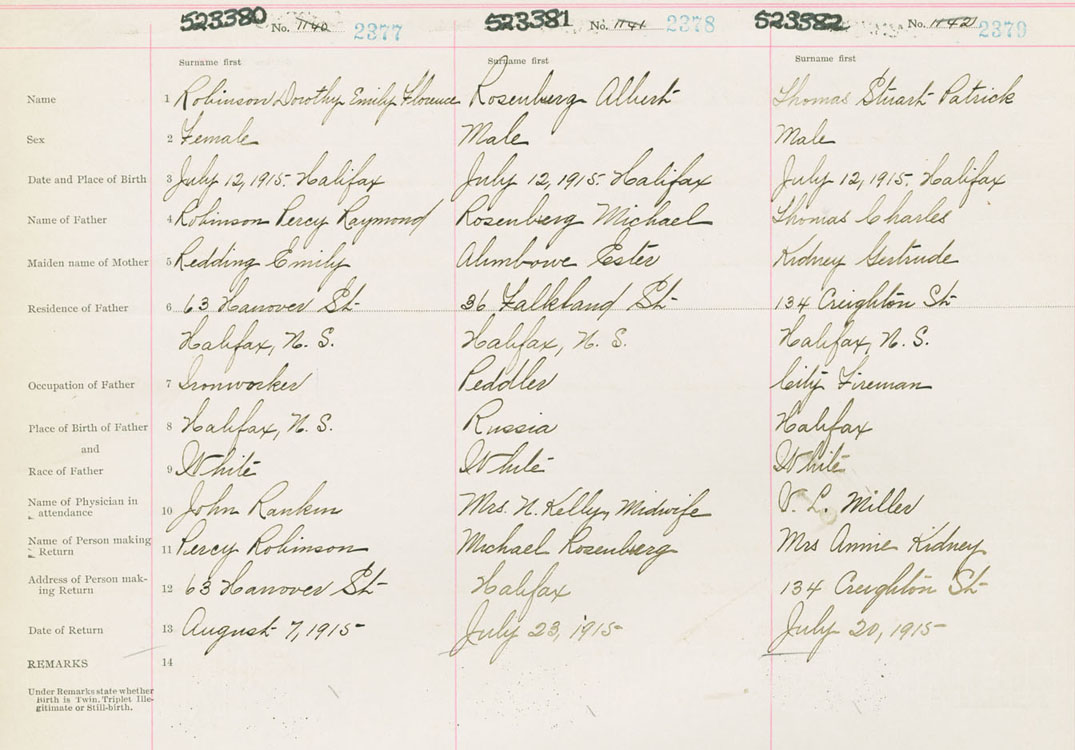 523380 No. 1140 2377 523381 No. 1141 2378 523382 No. 1142 2379
Surname first Surname first Surname first
Name 1 Robinson Dorothy Emily Florence Rosenberg Albert Thomas Stuart Patrick
Sex 2 Female Male Male
Date and Place of Birth 3 July 12, 1915. Halifax July 12, 1915. Halifax July 12, 1915. Halifax
Name of Father 4 Robinson Percy Raymond Rosenberg Michael Thomas Charles
Maiden name of Mother 5 Redding Emily Ester Kidney Gertrude
Residence of Father 6 63 Hanover St 36 Falkland St 134 Creighton St
Halifax, N. S. Halifax, N. S. Halifax, N. S.
Occupation of Father 7 Ironworker Peddler City Fireman
Place of Birth of Father 8 Halifax, N. S. Russia Halifax
and
Race of Father 9 White White White
Name of Physician in
attendance 10 John Rankin Mrs. N. Kelly, Midwife V. L. Miller
Name of Person making
Return 11 Percy Robinson Michael Rosenberg Mrs Annie Kidney
Address of Person mak-
ing Return 12 63 Hanover St Halifax 134 Creighton St
Date of Return 13 August 7, 1915 July 23, 1915 July 20, 1915
REMARKS 14
Under Remarks state whether
Birth is Twin, Triplet Ille-
gitimate or Still-birth.